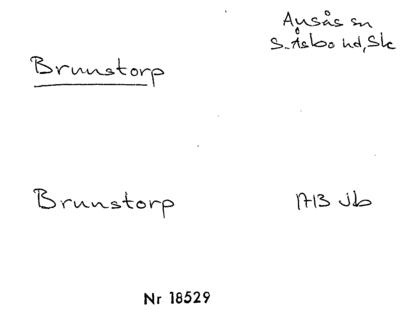 Ausås sn
S. Åsbo hd, Sk
Brunstorp
Brunstorp
1713 Jb
Nr 18529